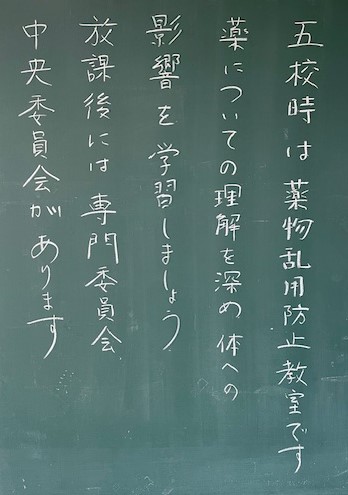 五校時は薬物乱用防止教室です
薬についての理解を深め体への
影響を学習しましょう
放課後には専門委員会
中央委員会があります